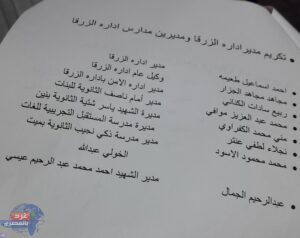 • تكريم مدير اداره الزرقا ومديرين مدارس اداره الزرقا
• احمد اسماعيل طعيمه مدير اداره الزرقا
• مجاهد مجاهد الجزار وكيل عام اداره الزرقا
• ربيع سادات الكناني مدير اداره الامن باداره الزرقا
• محمد عبد العزيز موافي مدير امام ناصف الثانوية للبنات
• مني محمد الكفراوي مديرة الشهيد ياسر شتية الثانوية بنين
• نجلاء لطفي عنتر مديرة مدرسة المستقبل التجريبية للغات
• محمد محمود الاسود مدير مدرسة ذكي نجيب الثانوية بميت
الخولي عبدالله
• عبدالرحيم الجمال مدير الشهيد احمد محمد عبد الرحيم عيسي
غرد
بالمصري